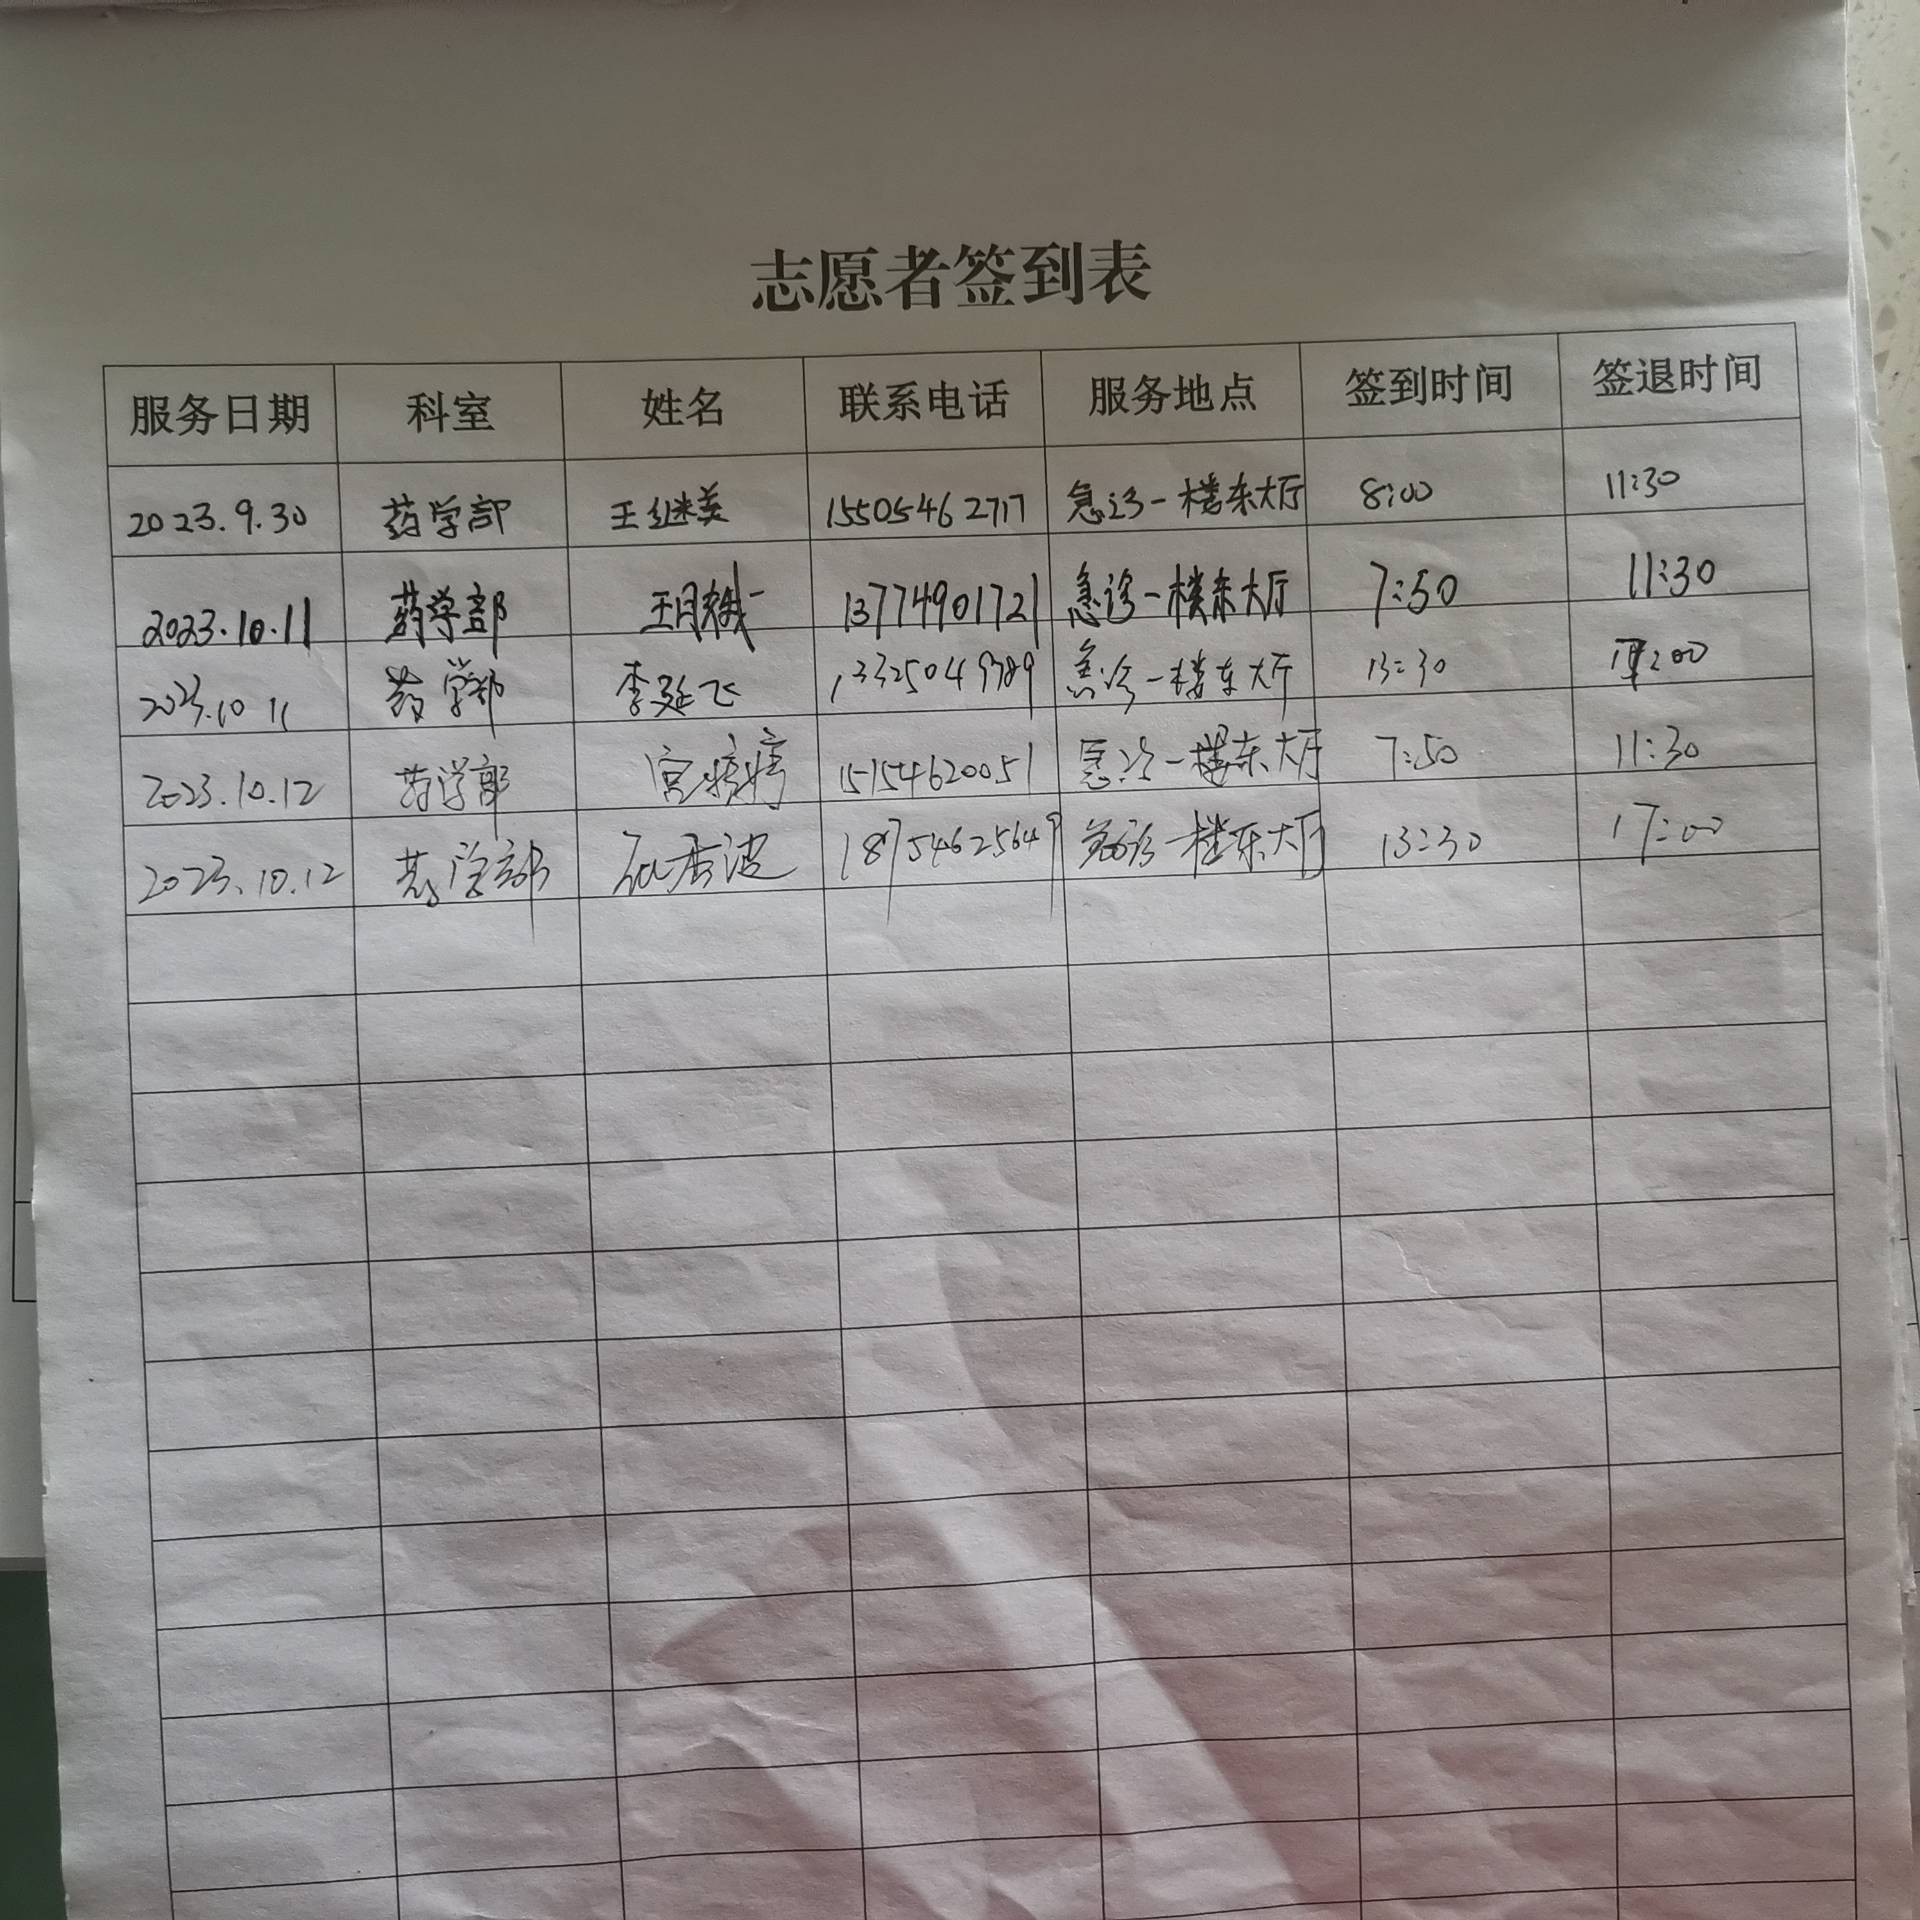 志愿者签到表
服务日期 科室 姓名 联系电话 服务地点 签到时间 签退时间
2023.9.30 药学部 王继美 15505462717 急诊一楼东大厅 8:00 11:30
2023.10.11 药学部 13774901721 急诊一楼东大厅 7:50 11:30
2023.10.11 药学部 李延飞 急诊一楼东大厅 13:30
2023.10.12 药学部 宫婷婷 15154620051 急诊一楼东大厅 7:50 11:30
2023.10.12 药学部 18754625649 急诊一楼东大厅 13:30 17:00